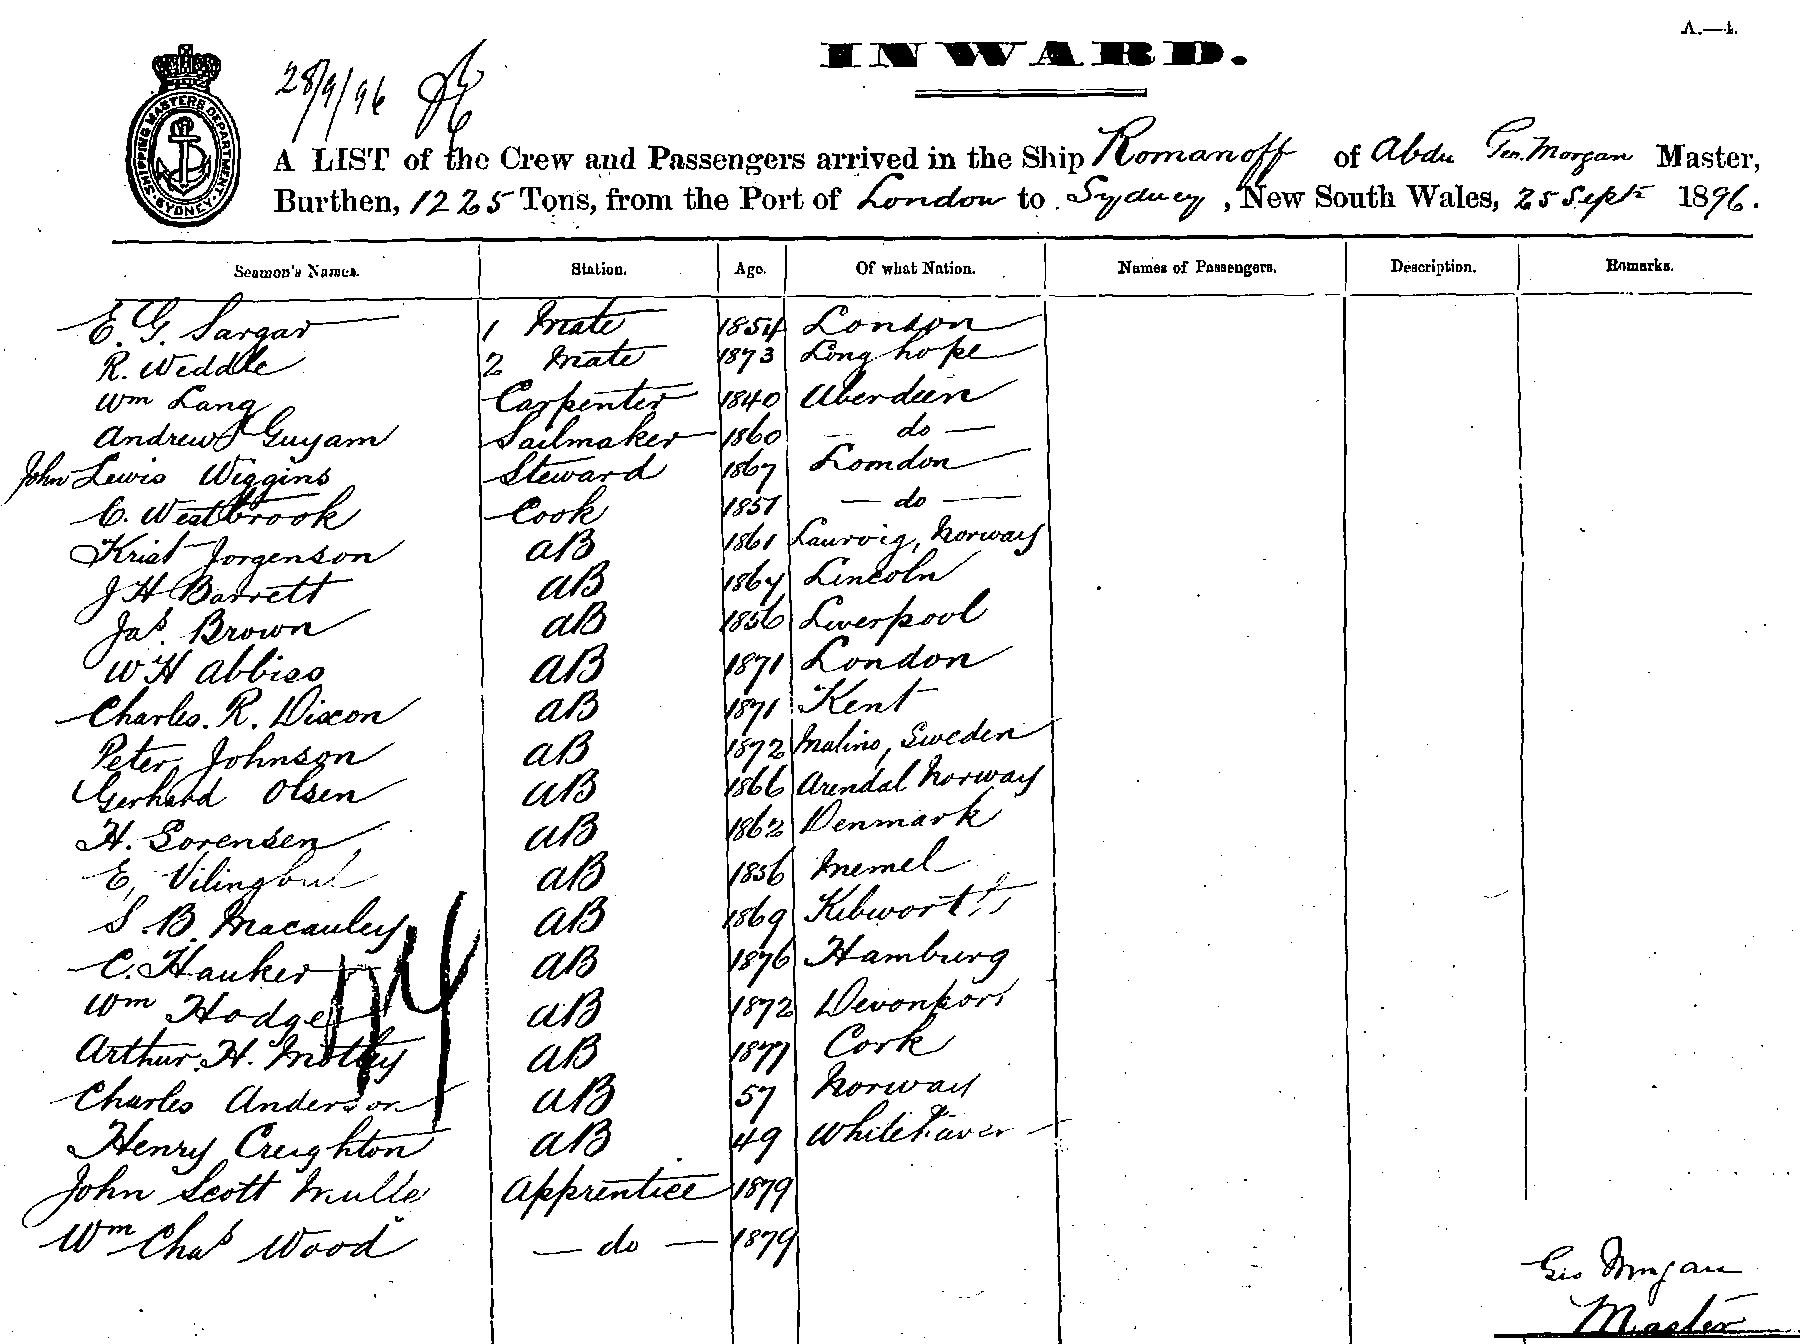 A.—4.
INWARD.
28/9/96
SHIPPING MASTERS DEPARTMENT SYDNEY
A LIST of the Crew and Passengers arrived in the Ship Romanoff of Abdn Geo. Morgan Master,
Burthen, 1225 Tons, from the Port of London to Sydney, New South Wales, 25 Sept 1896.
Seamen's Names. Station. Age. Of what Nation. Names of Passengers. Description. Remarks.
E. G. Sargar 1 Mate 1854 London
R. Weddle 2 Mate 1873 Longhope
Wm Lang Carpenter 1840 Aberdeen
Andrew Guyam Sailmaker 1860 — do —
John Lewis Wiggins Steward 1867 London
C. Westbrook Cook 1851 — do —
Krist Jorgenson AB 1861 Laurvig, Norway
J H Barrett AB 1864 Lincoln
Jas. Brown AB 1856 Liverpool
W H Abbiss AB 1871 London
Charles. R. Dixon AB 1871 Kent
Peter Johnson AB 1872 Malino, Sweden
Gerhard Olsen AB 1866 Arendal Norway
H. Sorensen AB 1862 Denmark
E, AB 1856 Memel
S B. Macauley AB 1869 Kibworth
C. Hauker AB 1876 Hamburg
Wm Hodge AB 1872 Devonport
Arthur. H. Motley AB 1877 Cork
Charles Anderson AB 57 Norway
Henry Creighton AB 49 Whitehaven
John Scott Apprentice 1879
Wm Chas Wood — do — 1879
Geo Morgan
Master